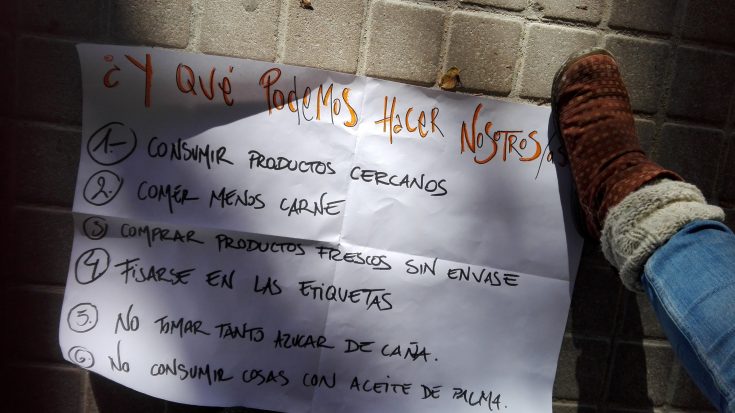 ¿Y QUÉ PODEMOS HACER NOSOTROS/AS
1.- CONSUMIR PRODUCTOS CERCANOS
2. COMÉR MENOS CARNE
3 COMPRAR PRODUCTOS FRESCOS SIN ENVASE
4 FISARSE EN LAS ETIQUETAS
5. NO TOMAR TANTO AZUCAR DE CAÑA.
6 NO CONSUMIR COSAS CON ACEITE DE PALMA.